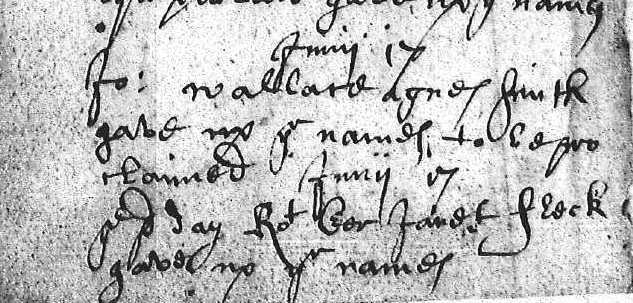 gave up yr names
Junij 17
Jo: wallace Agnes Smith
gave up yr names to be pro
claimed Junij 17
sd day Rot Ker Janet fleck
gave up yr names